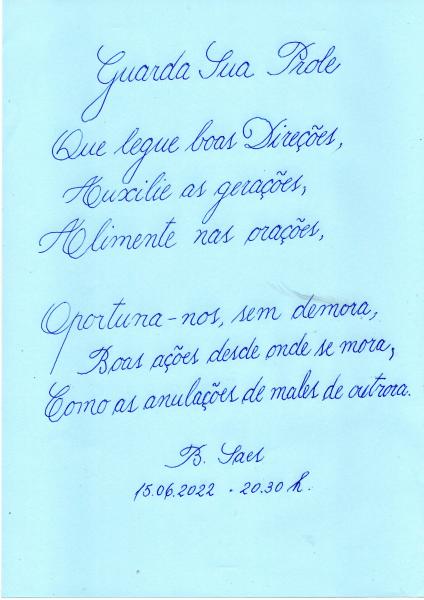 Guarda Sua Prole
Que legue boas Direções,
Auxilie as gerações,
Alimente nas orações,
Oportuna-nos, sem demora,
Boas ações desde onde se mora,
Como as anulações de males de outrora.
B. Saes
15.06.2022 - 20.30 h.